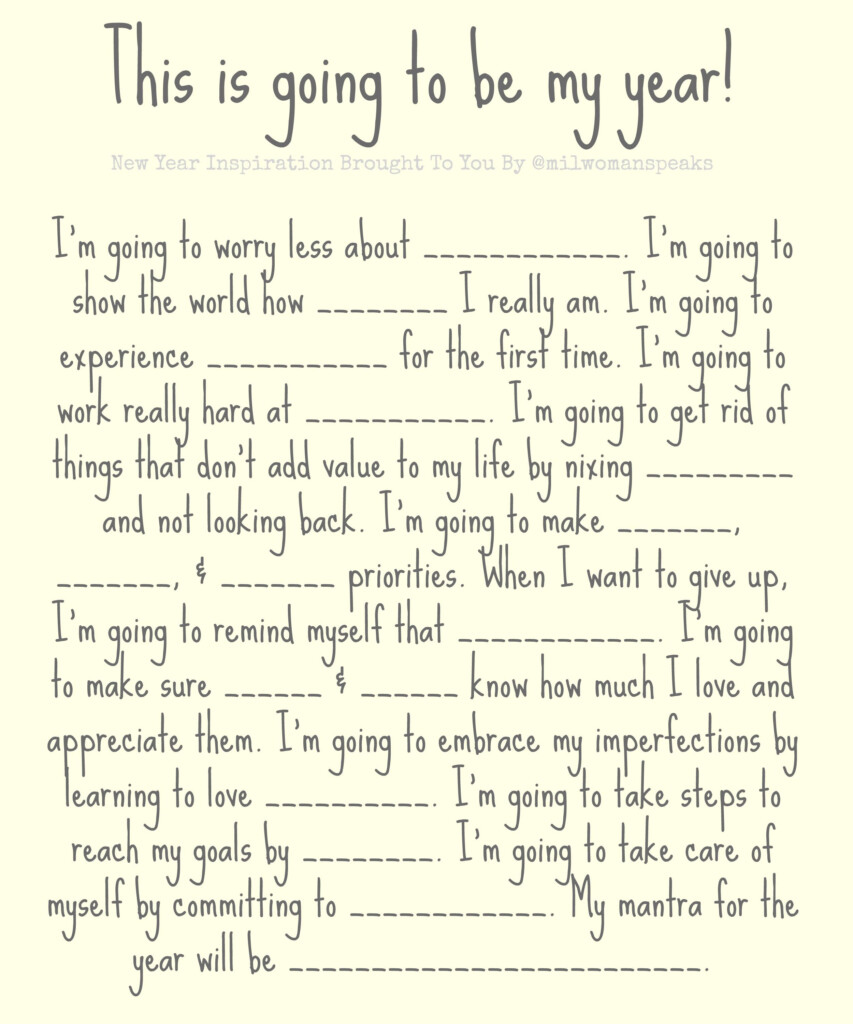 This is going to be my year!
New Year Inspiration Brought To You By @milwomanspeaks
I'm going to worry less about ____________. I'm going to
show the world how ________ I really am. I'm going to
experience ___________ for the first time. I'm going to
work really hard at ___________. I'm going to get rid of
things that don't add value to my life by nixing _________
and not looking back. I'm going to make _______,
_______, & _______ priorities. When I want to give up,
I'm going to remind myself that ____________. I'm going
to make sure ______ & ______ know how much I love and
appreciate them. I'm going to embrace my imperfections by
learning to love __________. I'm going to take steps to
reach my goals by ________. I'm going to take care of
myself by committing to ____________. My mantra for the
year will be _________________________.